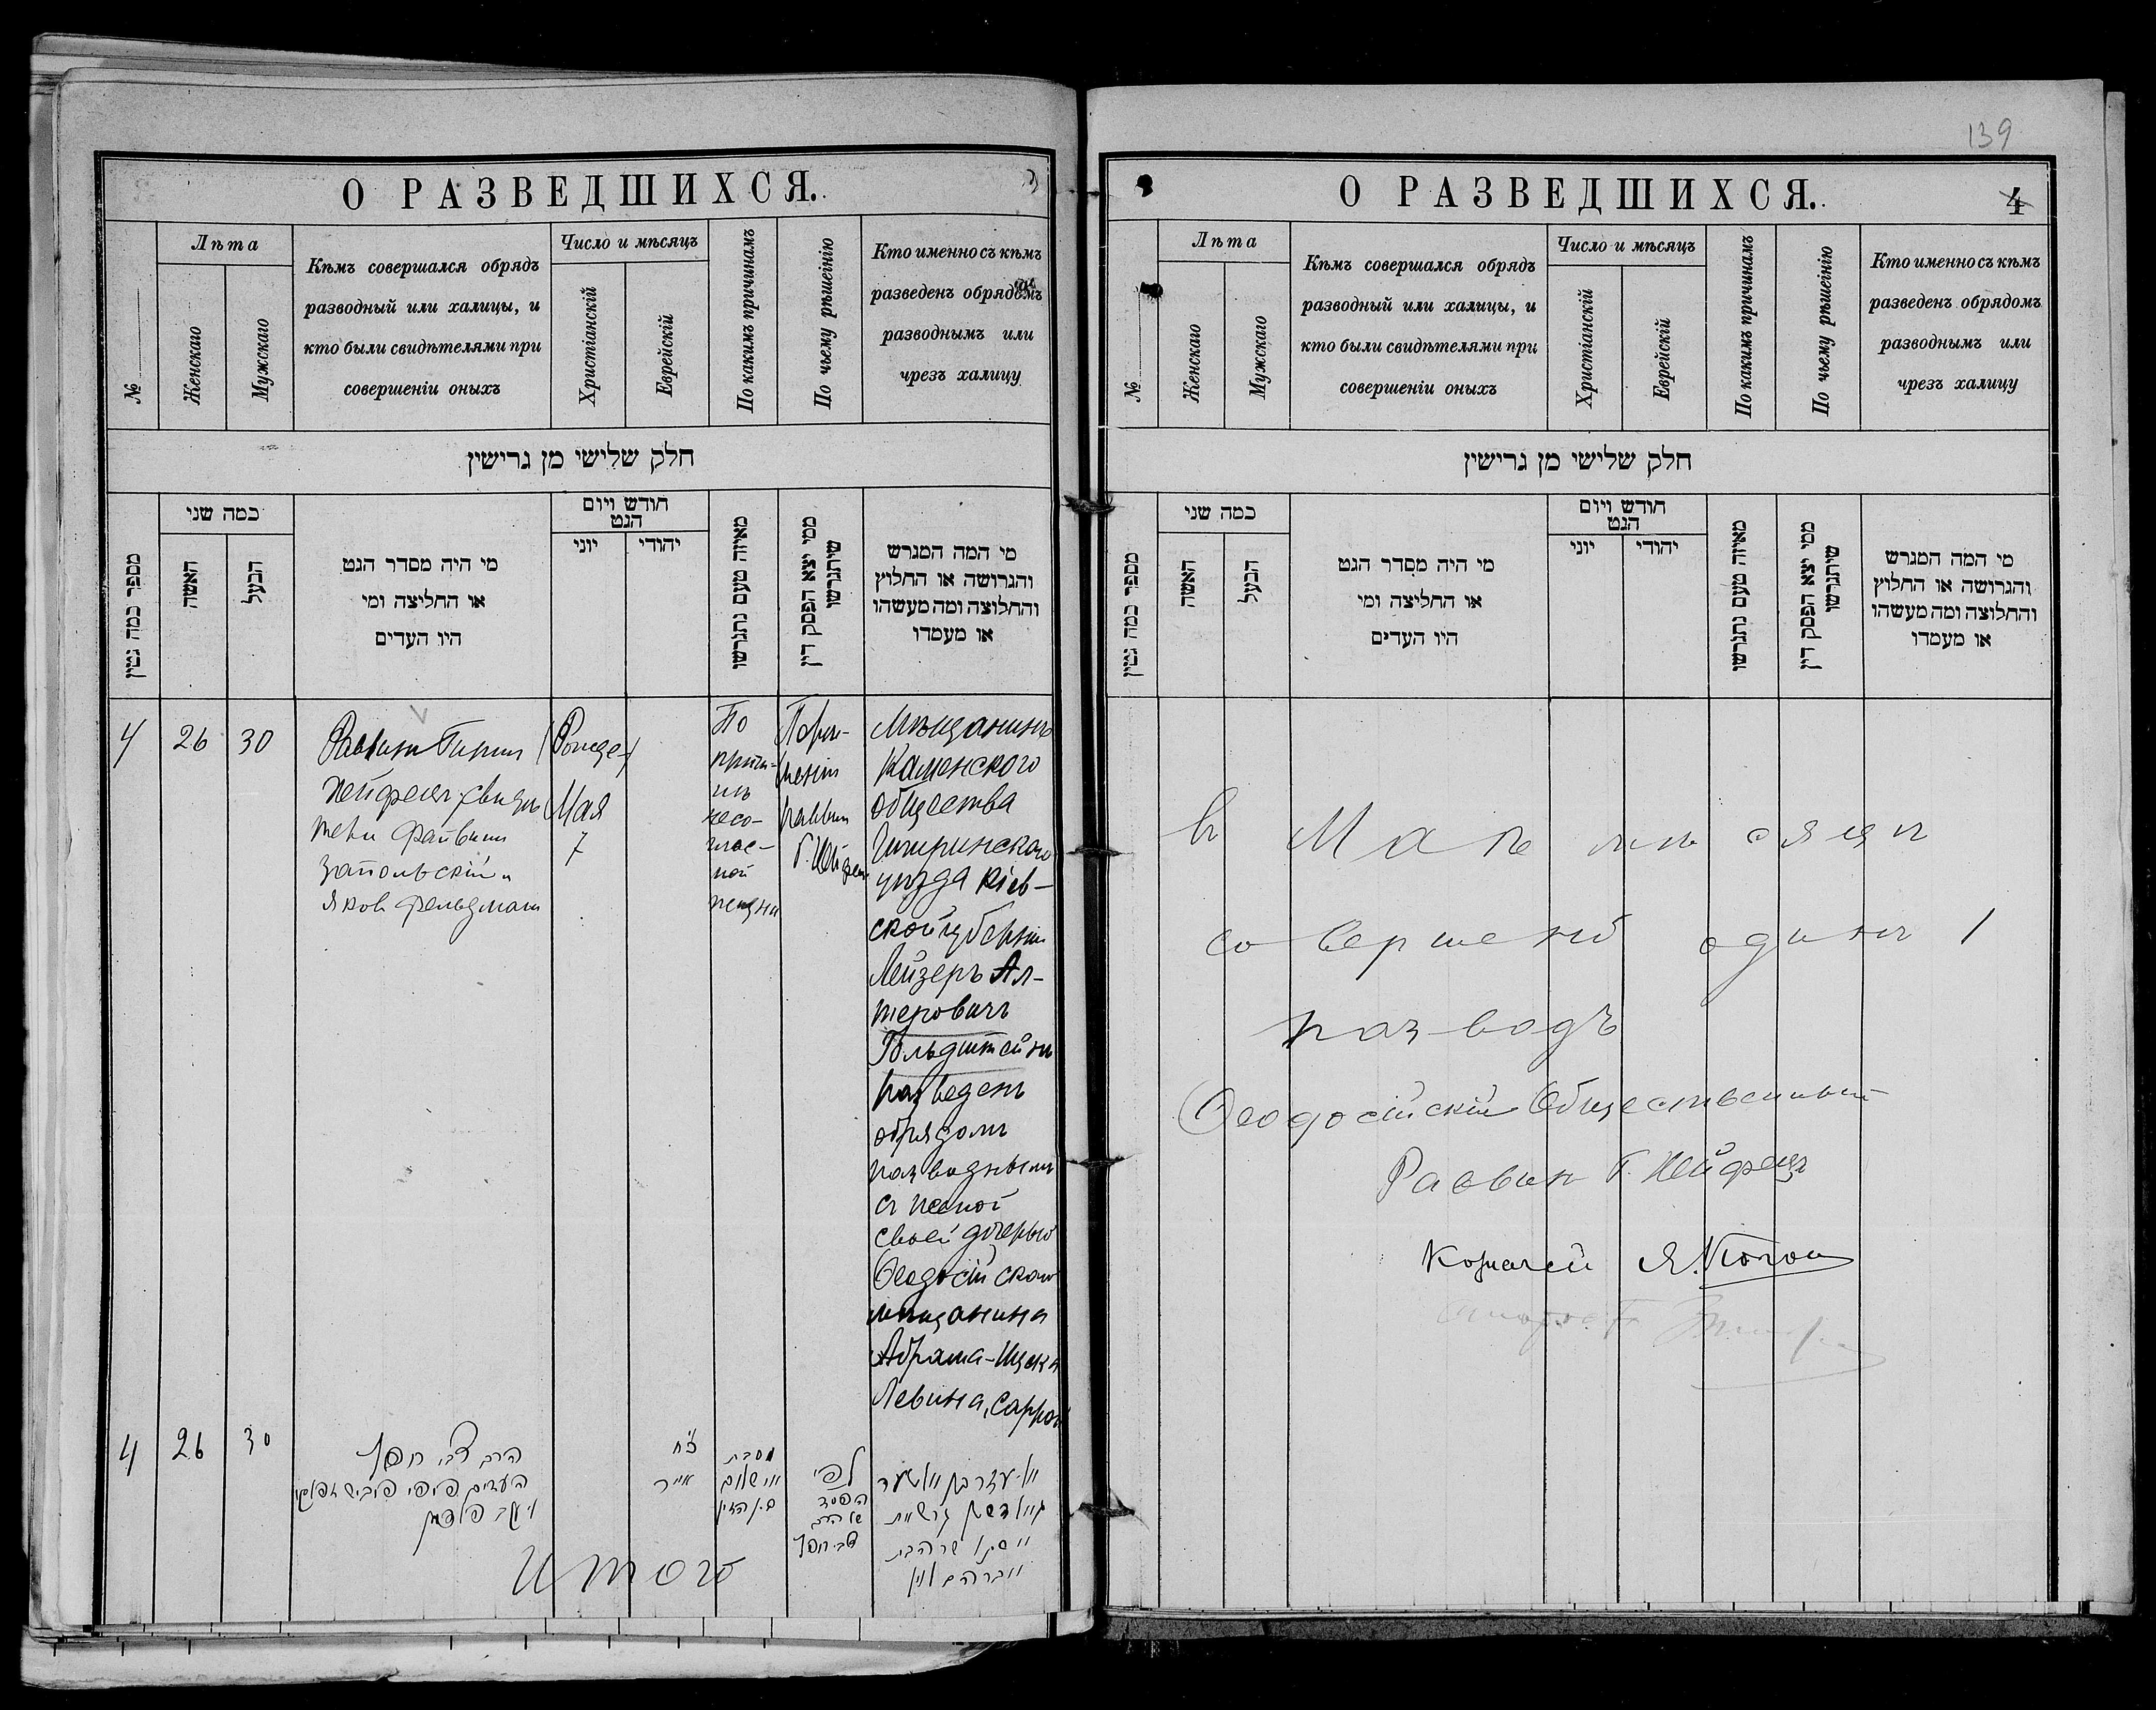 О РАЗВЕДШИХСЯ.
№
Лѣта
Женскаго
Мужскаго
Кѣмъ совершался обрядъ
разводный или халицы, и
кто были свидѣтелями при
совершеніи оныхъ
Число и мѣсяцъ
Христіанскій
Еврейскій
По какимъ причинамъ
По чьему рѣшеінію
Кто именно съ кѣмъ
разведенъ обрядомъ
разводнымъ или
чрезъ халицу
חלק שלישי מן גרישין
מספר כמה גטין
כמה שני
האשה
הבעל
מי היה מסדר הגט
או החליצה ומי
היו העדים
חודש ויום
הגט
יוני
יהודי
מאיזה טעם נתגרשו
ממי יצא הפסק דין
שיתגרשו
מי המה המגרש
והגרושה או החלוץ
והחלוצה ומה מעשהו
או מעמדו
4
26
30
Раввинъ Гиршъ
Хейфецъ, свидѣ-
тели Файвишъ
Запольскій и
Яковъ Фельдманъ
Мая
7
По
причи-
нѣ
несо-
глас-
ной
жизни
По рѣ-
шенію
раввина
Г. Хейфеца
Мѣщанинъ
Каменского
общества
Чигиринского
уѣзда Кіев-
ской губерніи
Лейзеръ Ал-
теровичъ
Гольдштейнъ
разведенъ
обрядомъ
разводнымъ
съ женой
своей дочерью
Ѳеодосійскаго
мѣщанина
Абрама-Ицека
Левина, Саррой
4
26
30
הרב צבי חפץ
העדים
אייר
לפי
הרב
צבי חפץ
Итого
139
О РАЗВЕДШИХСЯ.
4
№
Лѣта
Женскаго
Мужскаго
Кѣмъ совершался обрядъ
разводный или халицы, и
кто были свидѣтелями при
совершеніи оныхъ
Число и мѣсяцъ
Христіанскій
Еврейскій
По какимъ причинамъ
По чьему рѣшеінію
Кто именно съ кѣмъ
разведенъ обрядомъ
разводнымъ или
чрезъ халицу
חלק שלישי מן גרישין
מספר כמה גטין
כמה שני
האשה
הבעל
מי היה מסדר הגט
או החליצה ומי
היו העדים
חודש ויום
הגט
יוני
יהודי
מאיזה טעם נתגרשו
ממי יצא הפסק דין
שיתגרשו
מי המה המגרש
והגרושה או החלוץ
והחלוצה ומה מעשהו
או מעמדו
въ Маѣ мѣсяцѣ
совершенъ одинъ 1
разводъ
Ѳеодосійскій Общественный
Раввинъ Г. Хейфецъ
Козначей Я.